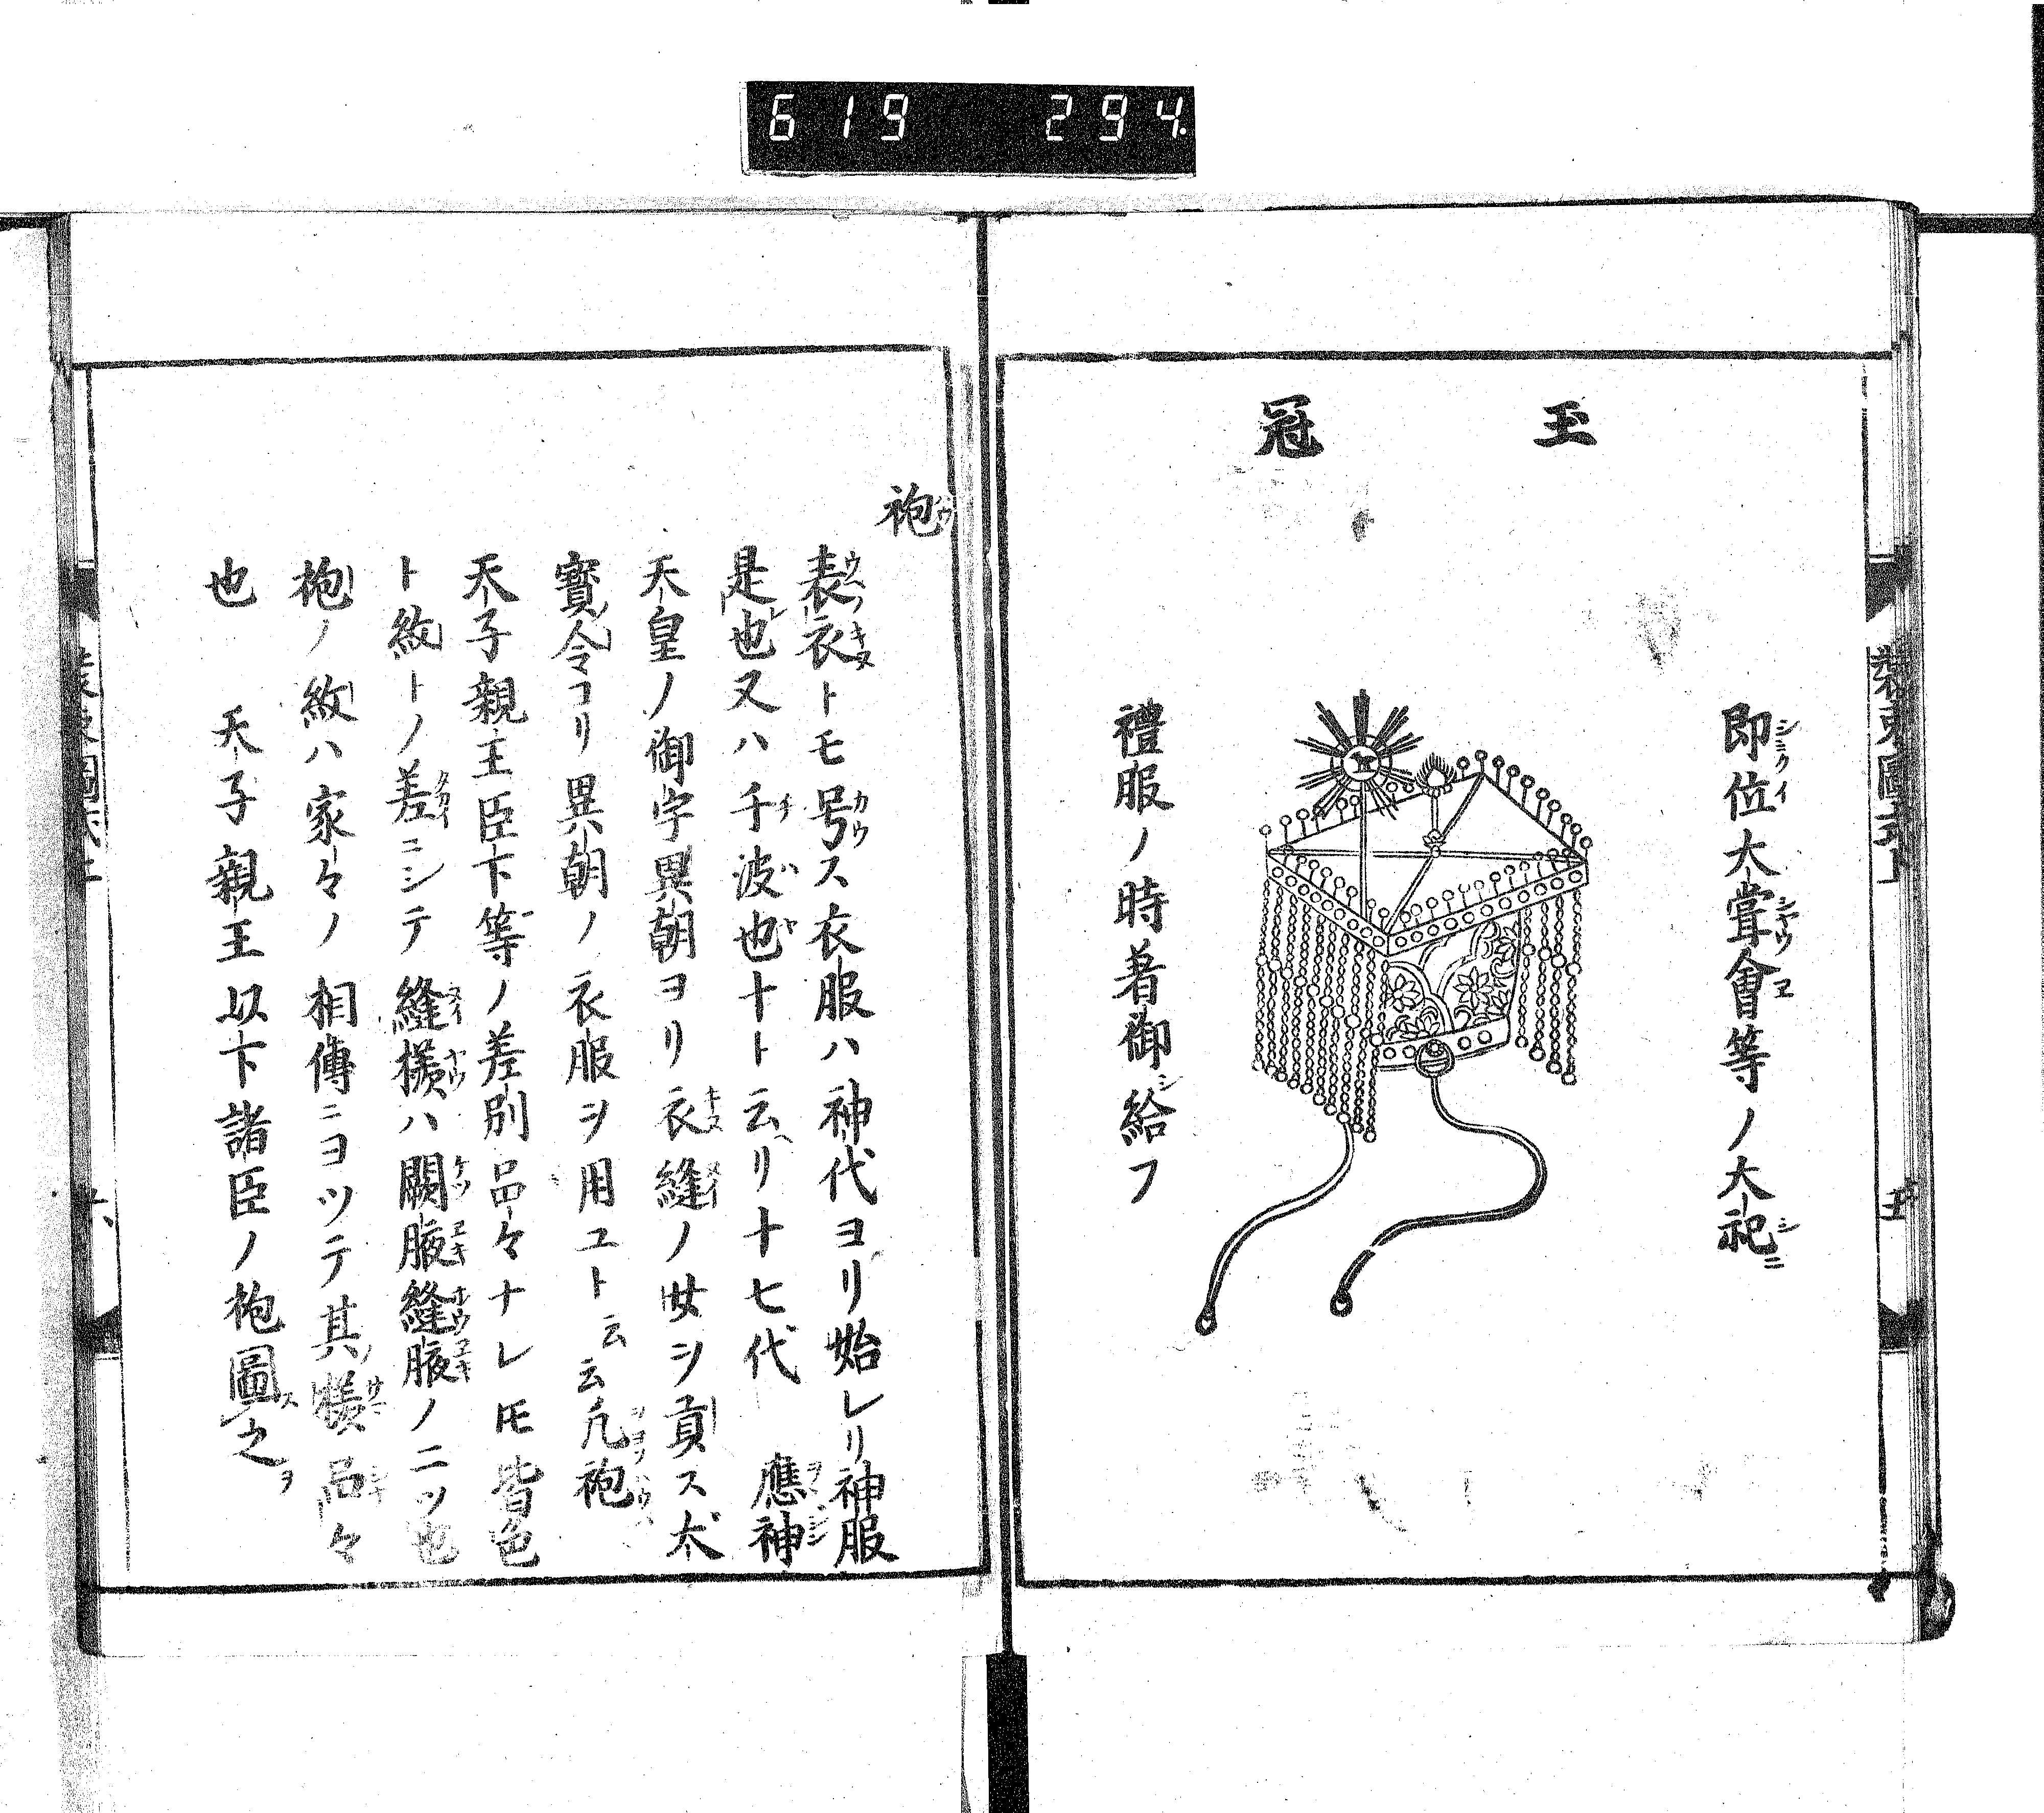 619 294
玉冠
即位大甞會等ノ大祀
禮服ノ時著御給フ
袍
表衣トモ号ス衣服ハ神代ヨリ始レリ神服
是也又ハ千波也ナト云リ十七代 應神
天皇ノ御宇異朝ヨリ衣縫ノ女ヲ貢ス大
寶令ヨリ異朝ノ衣服ヲ用ユト云云凡袍
天子親王臣下等ノ差別品々ナレ𪜈皆色
ト紋トノ差ニシテ縫樣ハ闕腋縫腋ノ二ツ也
袍ノ紋ハ家々ノ相傳ニヨツテ其樣品々
也 天子親王以下諸臣ノ袍圖之